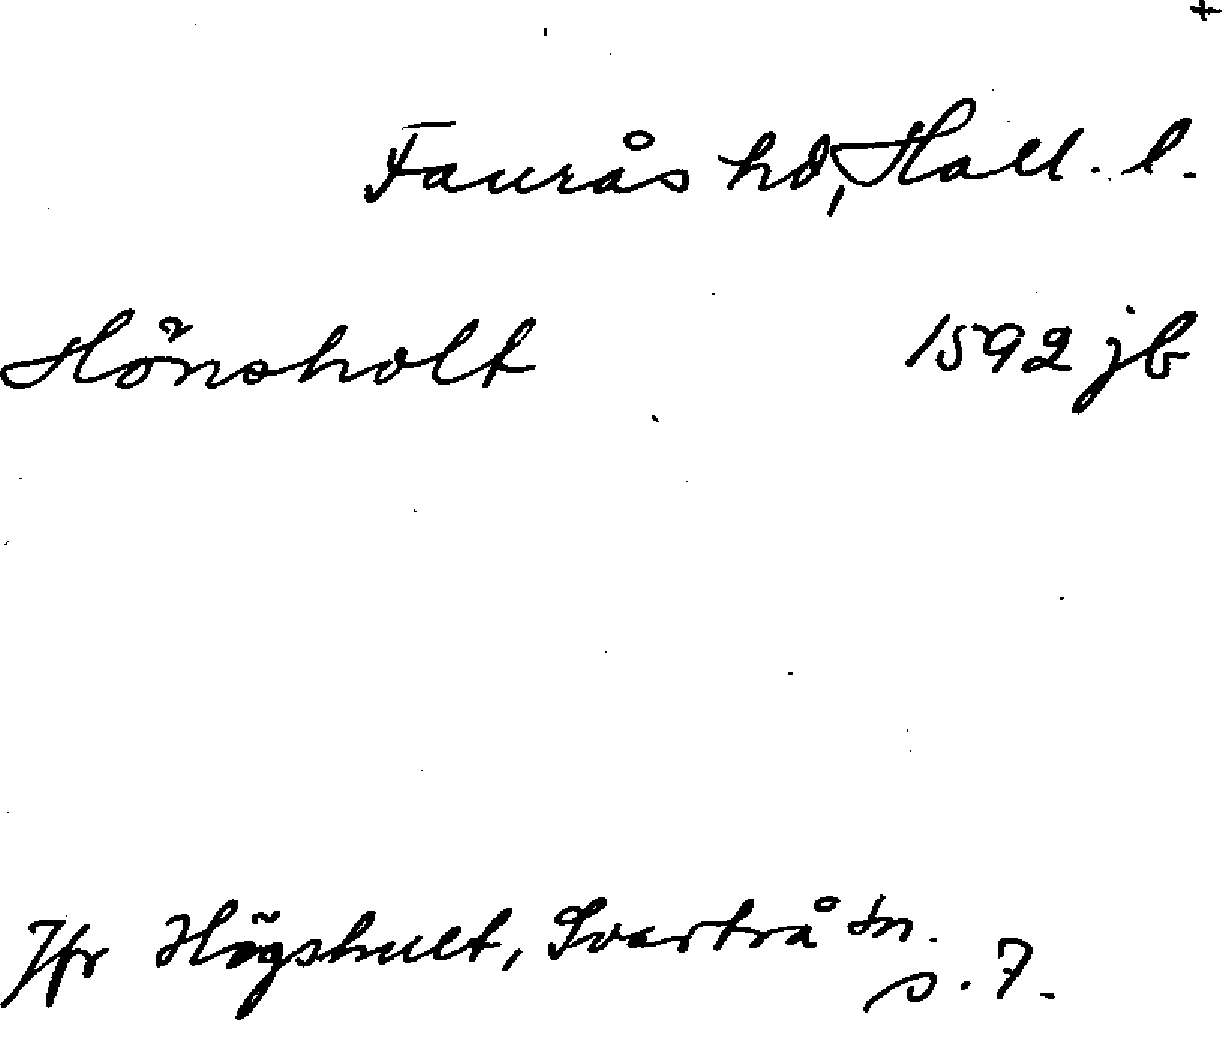 +
Faurås hd, Hall. l.
Hönsholt 1592 jb
Jfr Högshult, Svartrå sn.
s. 7.